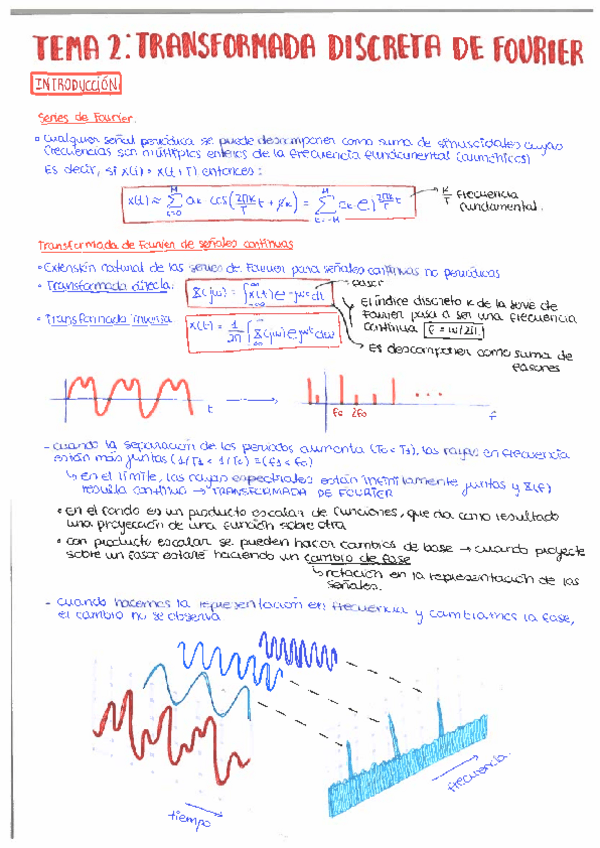 TEMA 2: TRANSFORMADA DISCRETA DE FOURIER
INTRODUCCIÓN
Series de Fourier.
• Cualquier señal periódica se puede descomponer como suma de sinusoidales cuyas
frecuencias son múltiplos enteros de la frecuencia fundamental (armónicos)
Es decir, si x(t) = x(t+T) entonces:
x(t) ≈ Σ ak cos(2πk/T t + φk) = Σ ck e^j 2πk/T t
k/T frecuencia
fundamental.
Transformada de Fourier de señales continuas
• Extensión natural de las series de Fourier para señales continuas no periódicas
• Transformada directa:
X(jω) = ∫ x(t) e^-jωt dt
fasor
El índice discreto k de la serie de
Fourier pasa a ser una frecuencia
continua f = ω/2π
• Transformada inversa
x(t) = 1/2π ∫ X(jω) e^jωt dω
Es descomponer como suma de
fasores
t
f0 2f0
f
- Cuando la separación de los periodos aumenta (T0 < T1), las rayas en frecuencia
están más juntas (1/T1 < 1/T0) = (f1 < f0)
↳ en el límite, las rayas espectrales están infinitamente juntas y X(f)
resulta continua → TRANSFORMADA DE FOURIER
• En el fondo es un producto escalar de funciones, que da como resultado
una proyección de una función sobre otra
• Con producto escalar se pueden hacer cambios de base → cuando proyecte
sobre un fasor estaré haciendo un cambio de base
↳ rotación en la representación de las
señales.
- Cuando hacemos la representación en frecuencia y cambiamos la fase,
el cambio no se observa
tiempo
frecuencia.